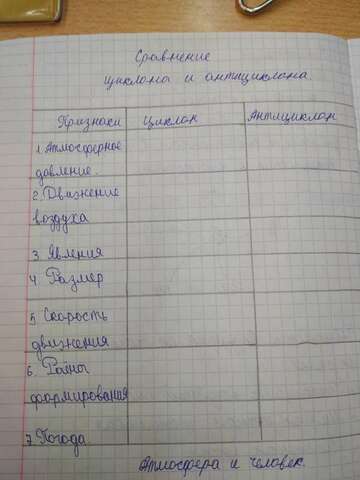 Сравнение
циклона и антициклона.
Признаки Циклон Антициклон
1. Атмосферное
давление.
2. Движение
воздуха
3 Явления
4 Размер
5 Скорость
движения
6. Районы
формирования
7 Погода
Атмосфера и человек.